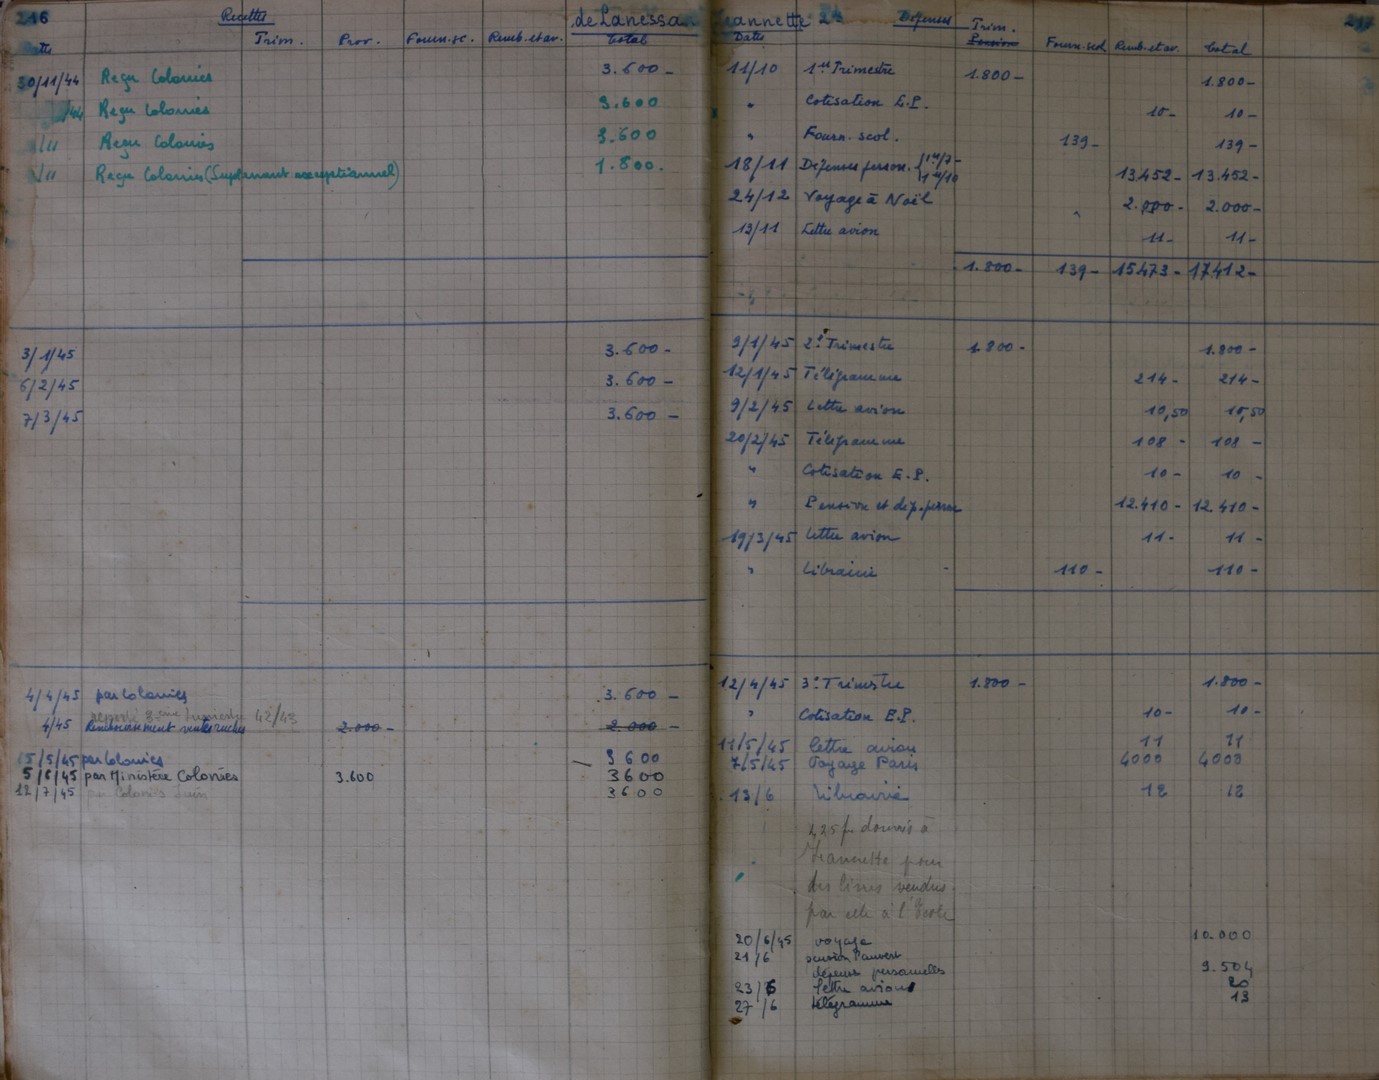 216 Recettes de Lanessan
Date Trim. Prov. Fourn. sc. Remb. et av. total
30/11/44 Reçu Colonies 3.600 -
/44 Reçu Colonies 3.600
" Reçu Colonies 3.600
" Reçu Colonies (Supplément exceptionnel) 1.800.
3/1/45 3.600 -
6/2/45 3.600 -
7/3/45 3.600 -
4/4/45 par Colonies 3.600 -
3ème trimestre 42/43
4/45 Remboursement 2.000 - 2.000 -
15/5/45 par Colonies 3600
5/6/45 par Ministère Colonies 3.600 3600
12/7/45 par Colonies Juin 3600
Jeannette 2e Dépenses 217
Date Trim. Pension Fourn. scol Remb. et av. total
11/10 1er Trimestre 1.800 - 1.800 -
" Cotisation E.P. 10 - 10 -
" Fourn. scol. 139 - 139 -
18/11 Dépenses person. 13.452 - 13.452 -
24/12 Voyage à Noël 2.000 - 2.000 -
13/11 Lettre avion 11 - 11 -
1.800 - 139 - 15473 - 17.412 -
9/1/45 2e Trimestre 1.800 - 1.800 -
12/1/45 Télégramme 214 - 214 -
9/2/45 Lettre avion 10,50 10,50
20/2/45 Télégramme 108 - 108 -
" Cotisation E.P. 10 - 10 -
" Pension et dép. perso 12.410 - 12.410 -
19/3/45 Lettre avion 11 - 11 -
" Librairie 110 - 110 -
12/4/45 3e Trimestre 1.800 - 1.800 -
" Cotisation E.P. 10 - 10 -
11/5/45 lettre avion 11 11
7/5/45 Voyage Paris 4000 4000
13/6 Librairie 12 12
225 f donnés à
Jeannette pour
des livres vendus
par elle à l'Ecole
20/6/45 voyage 10.000
21/6 pension
dépenses personnelles 9.504
23/6 lettre avion 20
27/6 télégramme 13